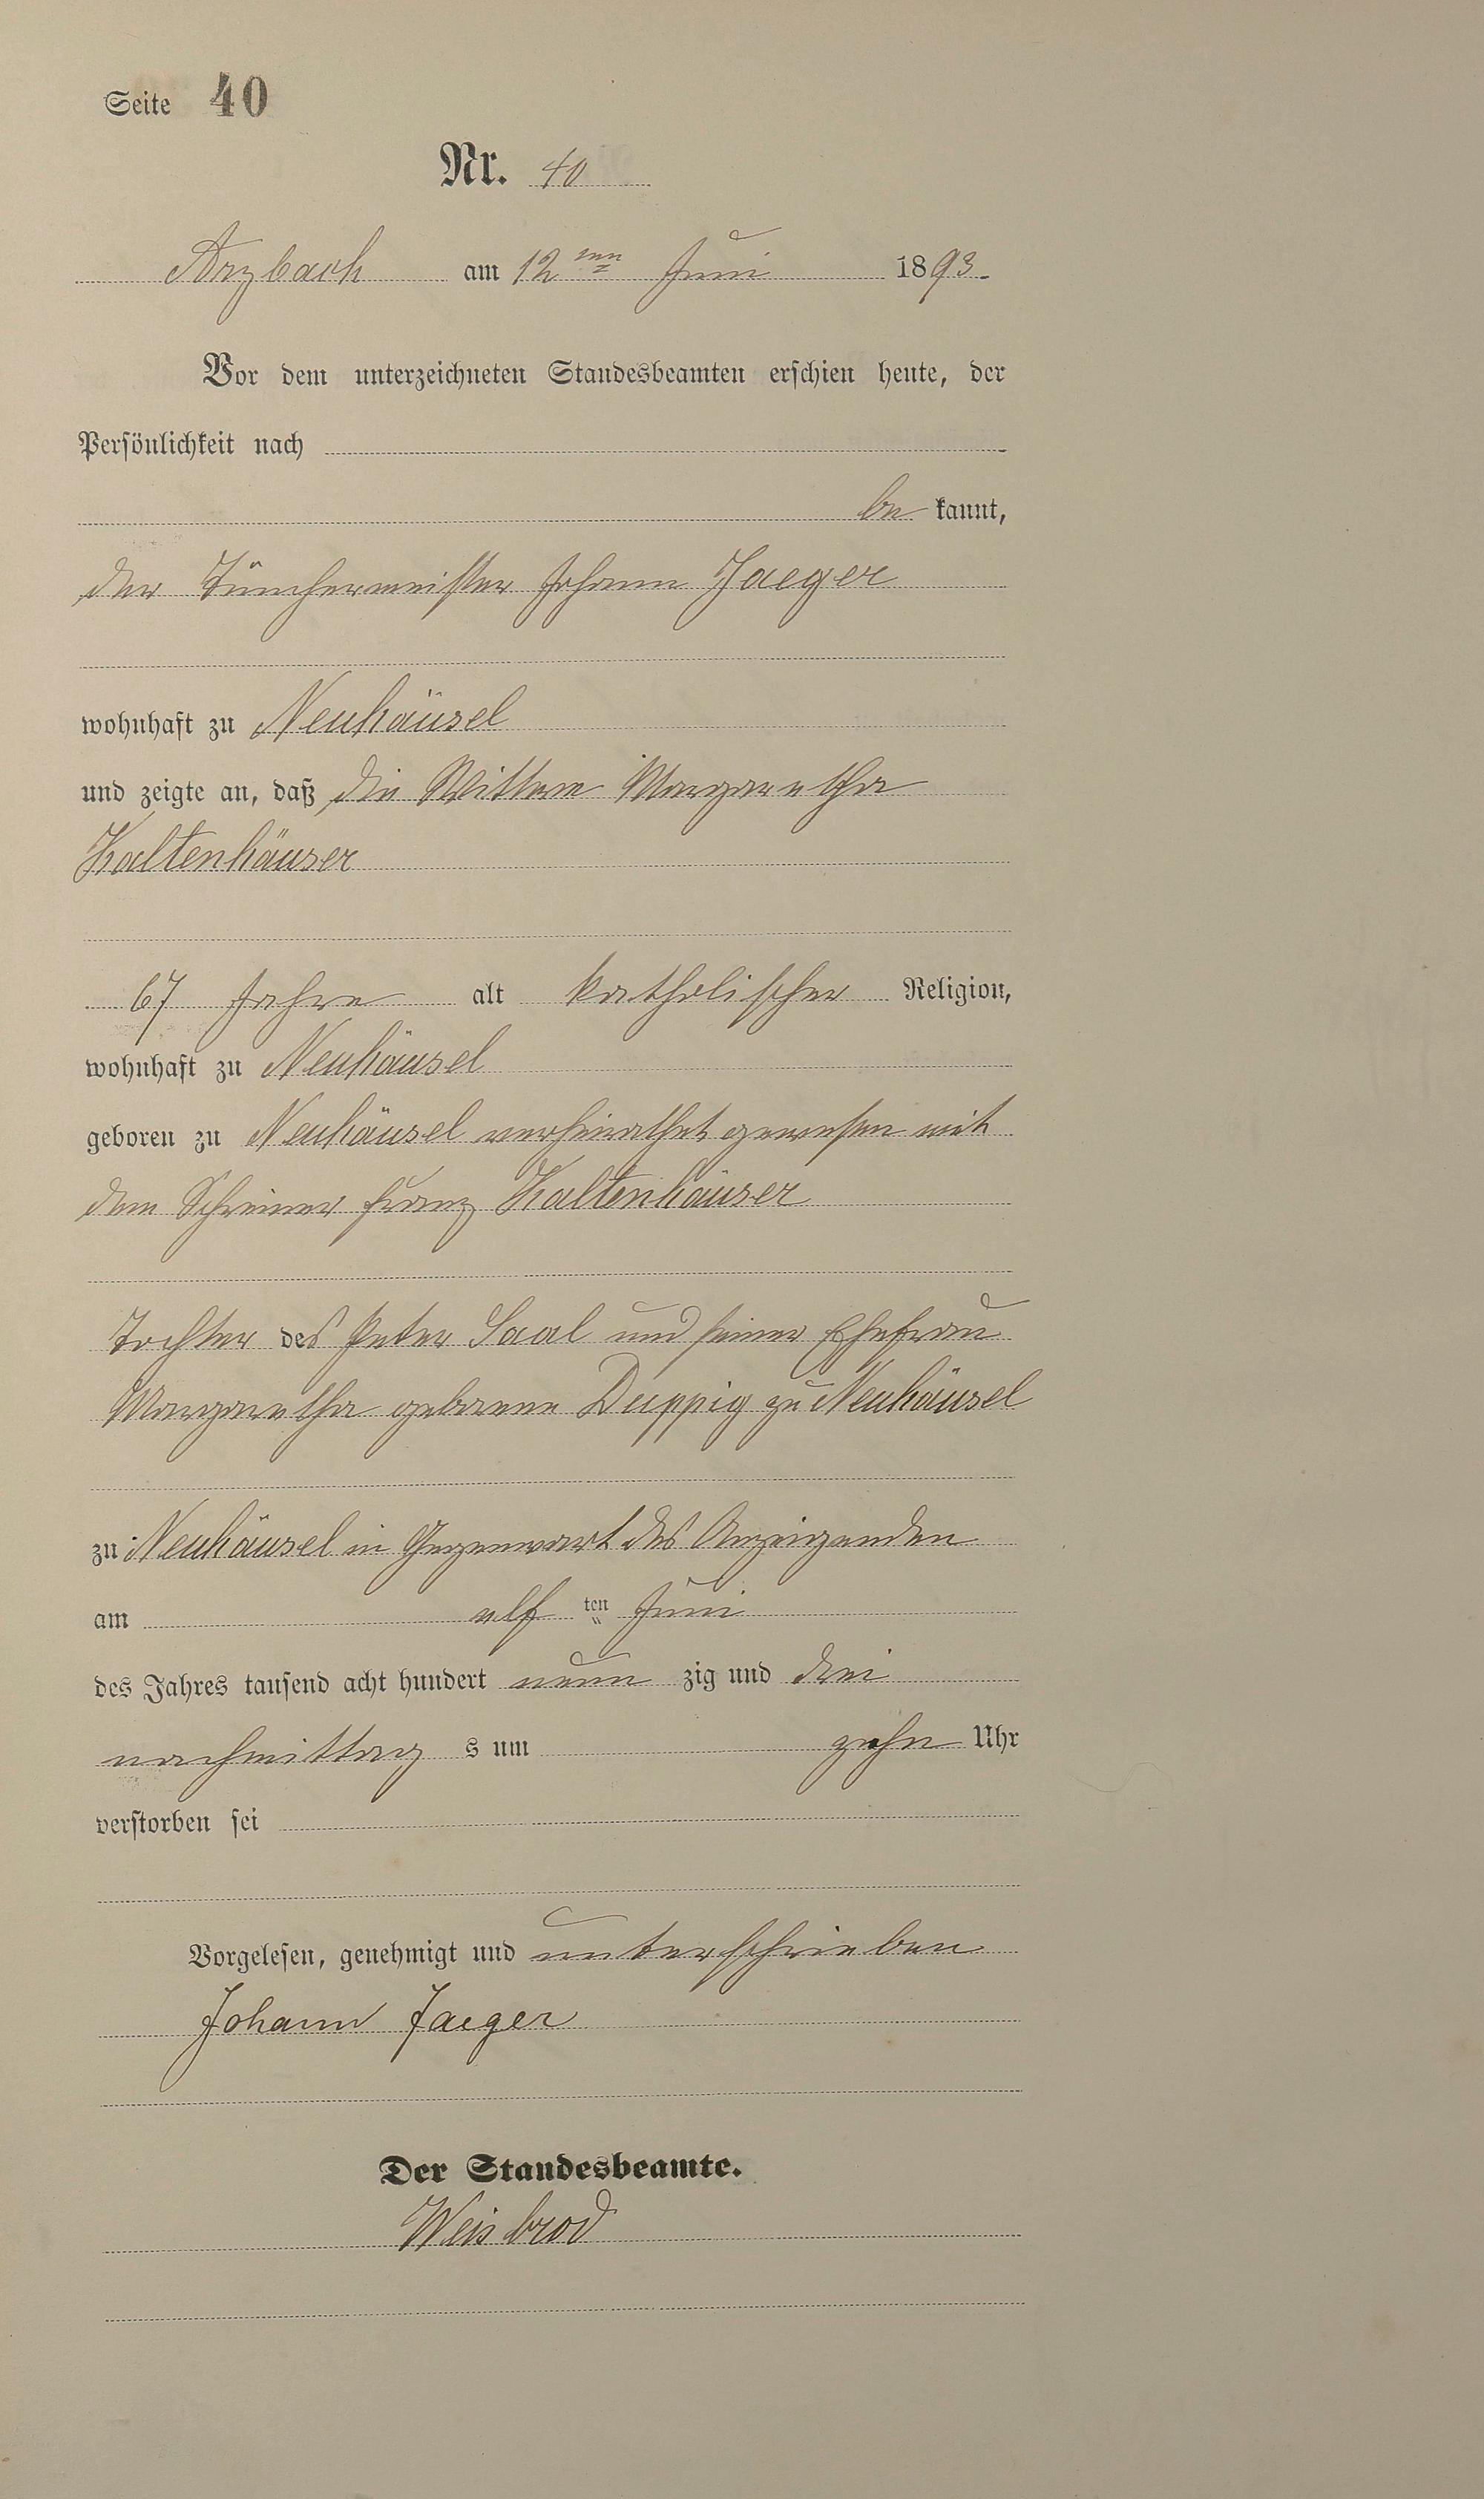 Seite 40
Nr. 40
Arzbach am 12ten Juni 1893.
Vor dem unterzeichneten Standesbeamten erschien heute, der
Persönlichkeit nach
be kannt,
der Tünchermeister Johann Jaeger
wohnhaft zu Neuhäusel
und zeigte an, daß die Wittwe Margaretha
Kaltenhäuser
67 Jahre alt katholischer Religion,
wohnhaft zu Neuhäusel
geboren zu Neuhäusel verheirathet gewesen mit
dem Schreiner Franz Kaltenhäuser
Tochter des Peter Saal und seiner Ehefrau
Margaretha geborene Duppig zu Neuhäusel
zu Neuhäusel in Gegenwart des Anzeigenden
am elf ten Juni
des Jahres tausend acht hundert neun zig und drei
nachmittag s um zehn Uhr
verstorben sei
Vorgelesen, genehmigt und unterschrieben
Johann Jaeger
Der Standesbeamte.
Weisbrod